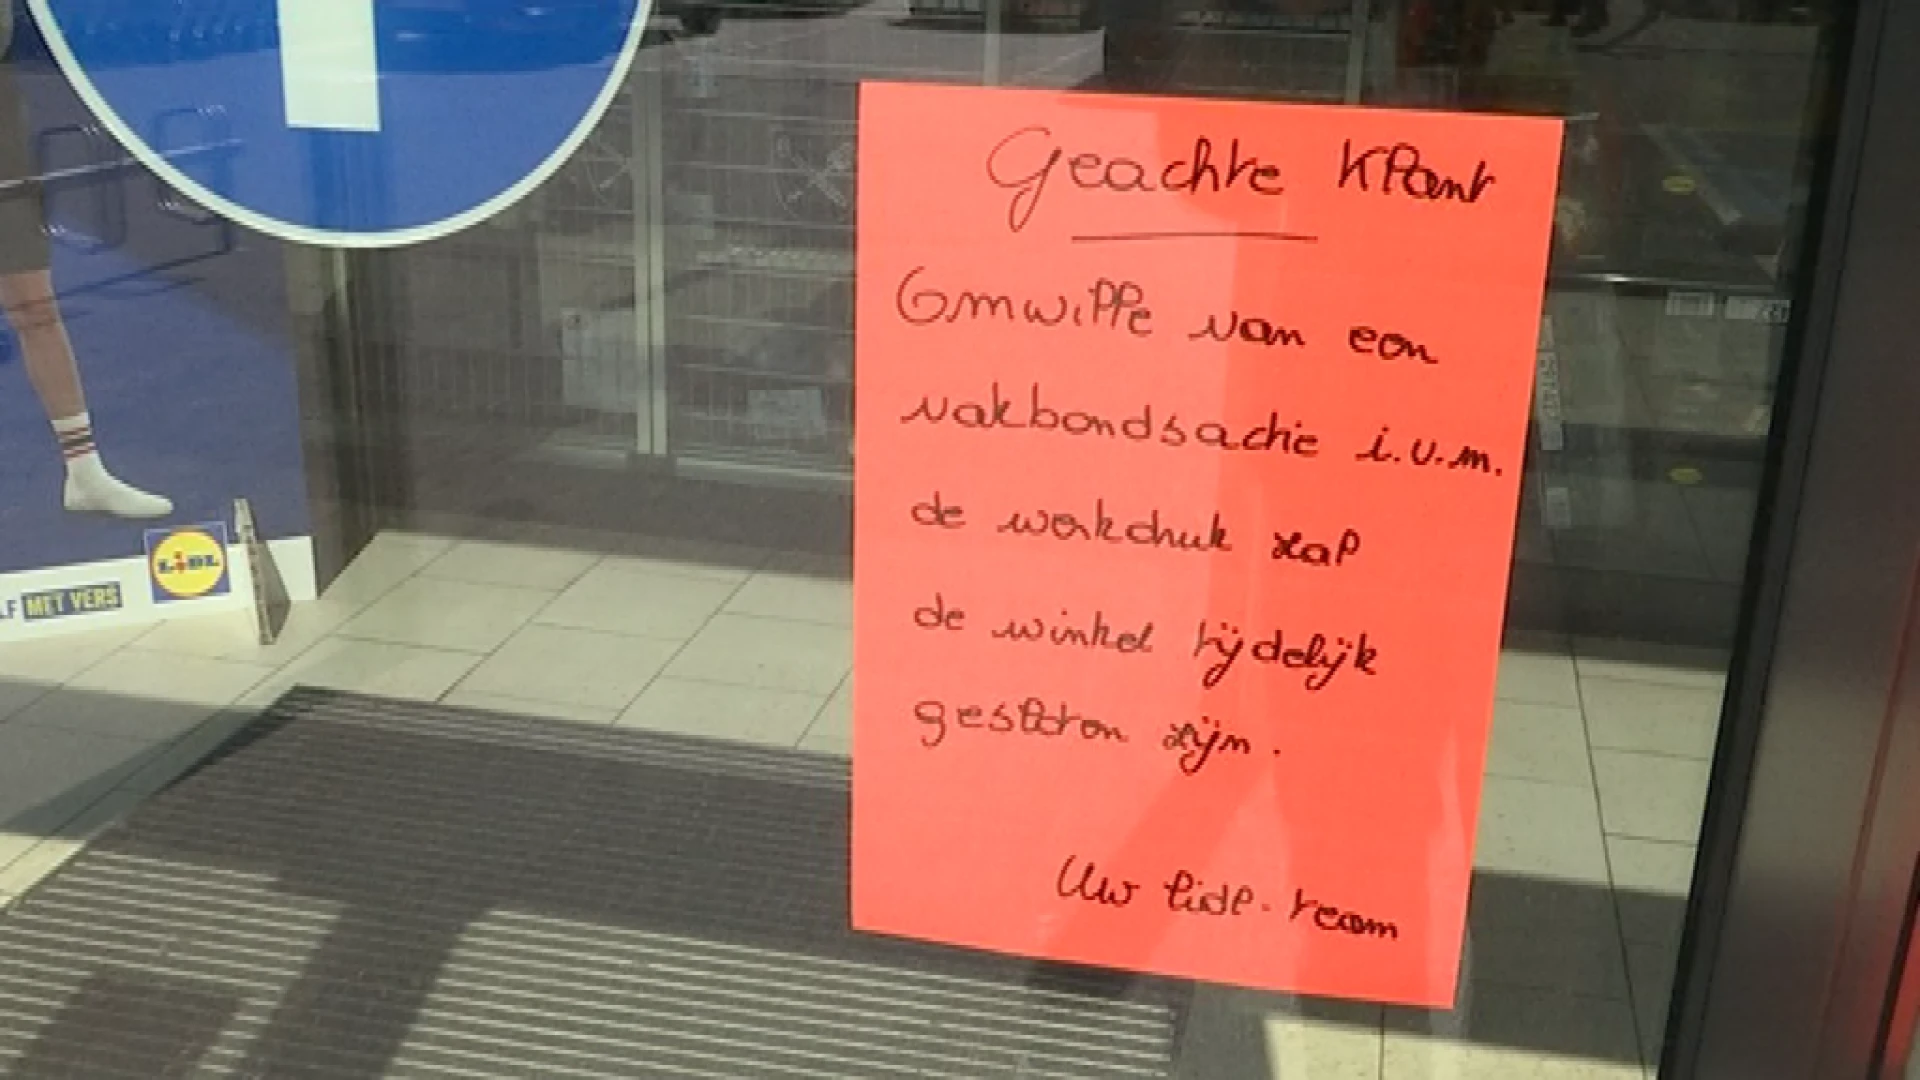 Geachte Klant
Omwille van een
vakbondsactie i.v.m.
de werkdruk zal
de winkel tijdelijk
gesloten zijn.
Uw lidl-team
LIDL
MET VERS